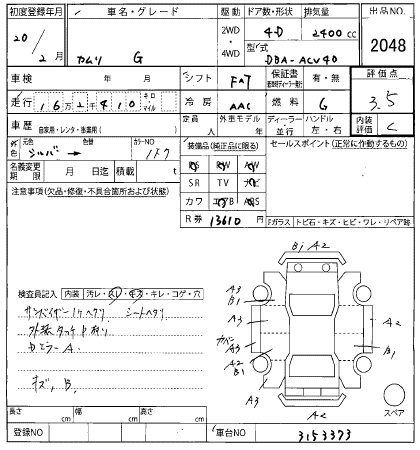 初度登録年月 車名・グレード 駆動 ドア数・形状 排気量 出品NO.
20/2月 カムリ G 2WD・4WD 4-D 2400cc 2048
型式 DBA-ACV40
車検 年 月 シフト FAT 保証書 評価点
走行 16万2千410 キロ・マイル 冷房 AAC 燃料 G 3.5
車歴 自家用・レンタ・事業用( ) 定員 人 外車モデル 年 ディーラー・並行 ハンドル 左・右 内装評価 C
外色 元色 シルバー → 色替 カラーNO 1F7 装備品(純正品に限る) セールスポイント(正常に作動するもの)
PS PW AW
名義変更期限 月 日迄 積載 t SR TV ナビ
注意事項(欠品・修復・不具合箇所および状態) カワ エアB ABS
R券 13610円
Fガラス トビ石・キズ・ヒビ・ワレ・リペア跡
B1 A2
検査員記入 内装 汚レ・スレ・キズ・キレ・コゲ・穴
サンバイザー シートヘタリ
A3
B1
A3
A3
A2
B1
A3
A2
B1
A2
スペア
ドミラーA
キズ、B
長さ cm 幅 cm 高さ cm
登録NO 車台NO 3153373